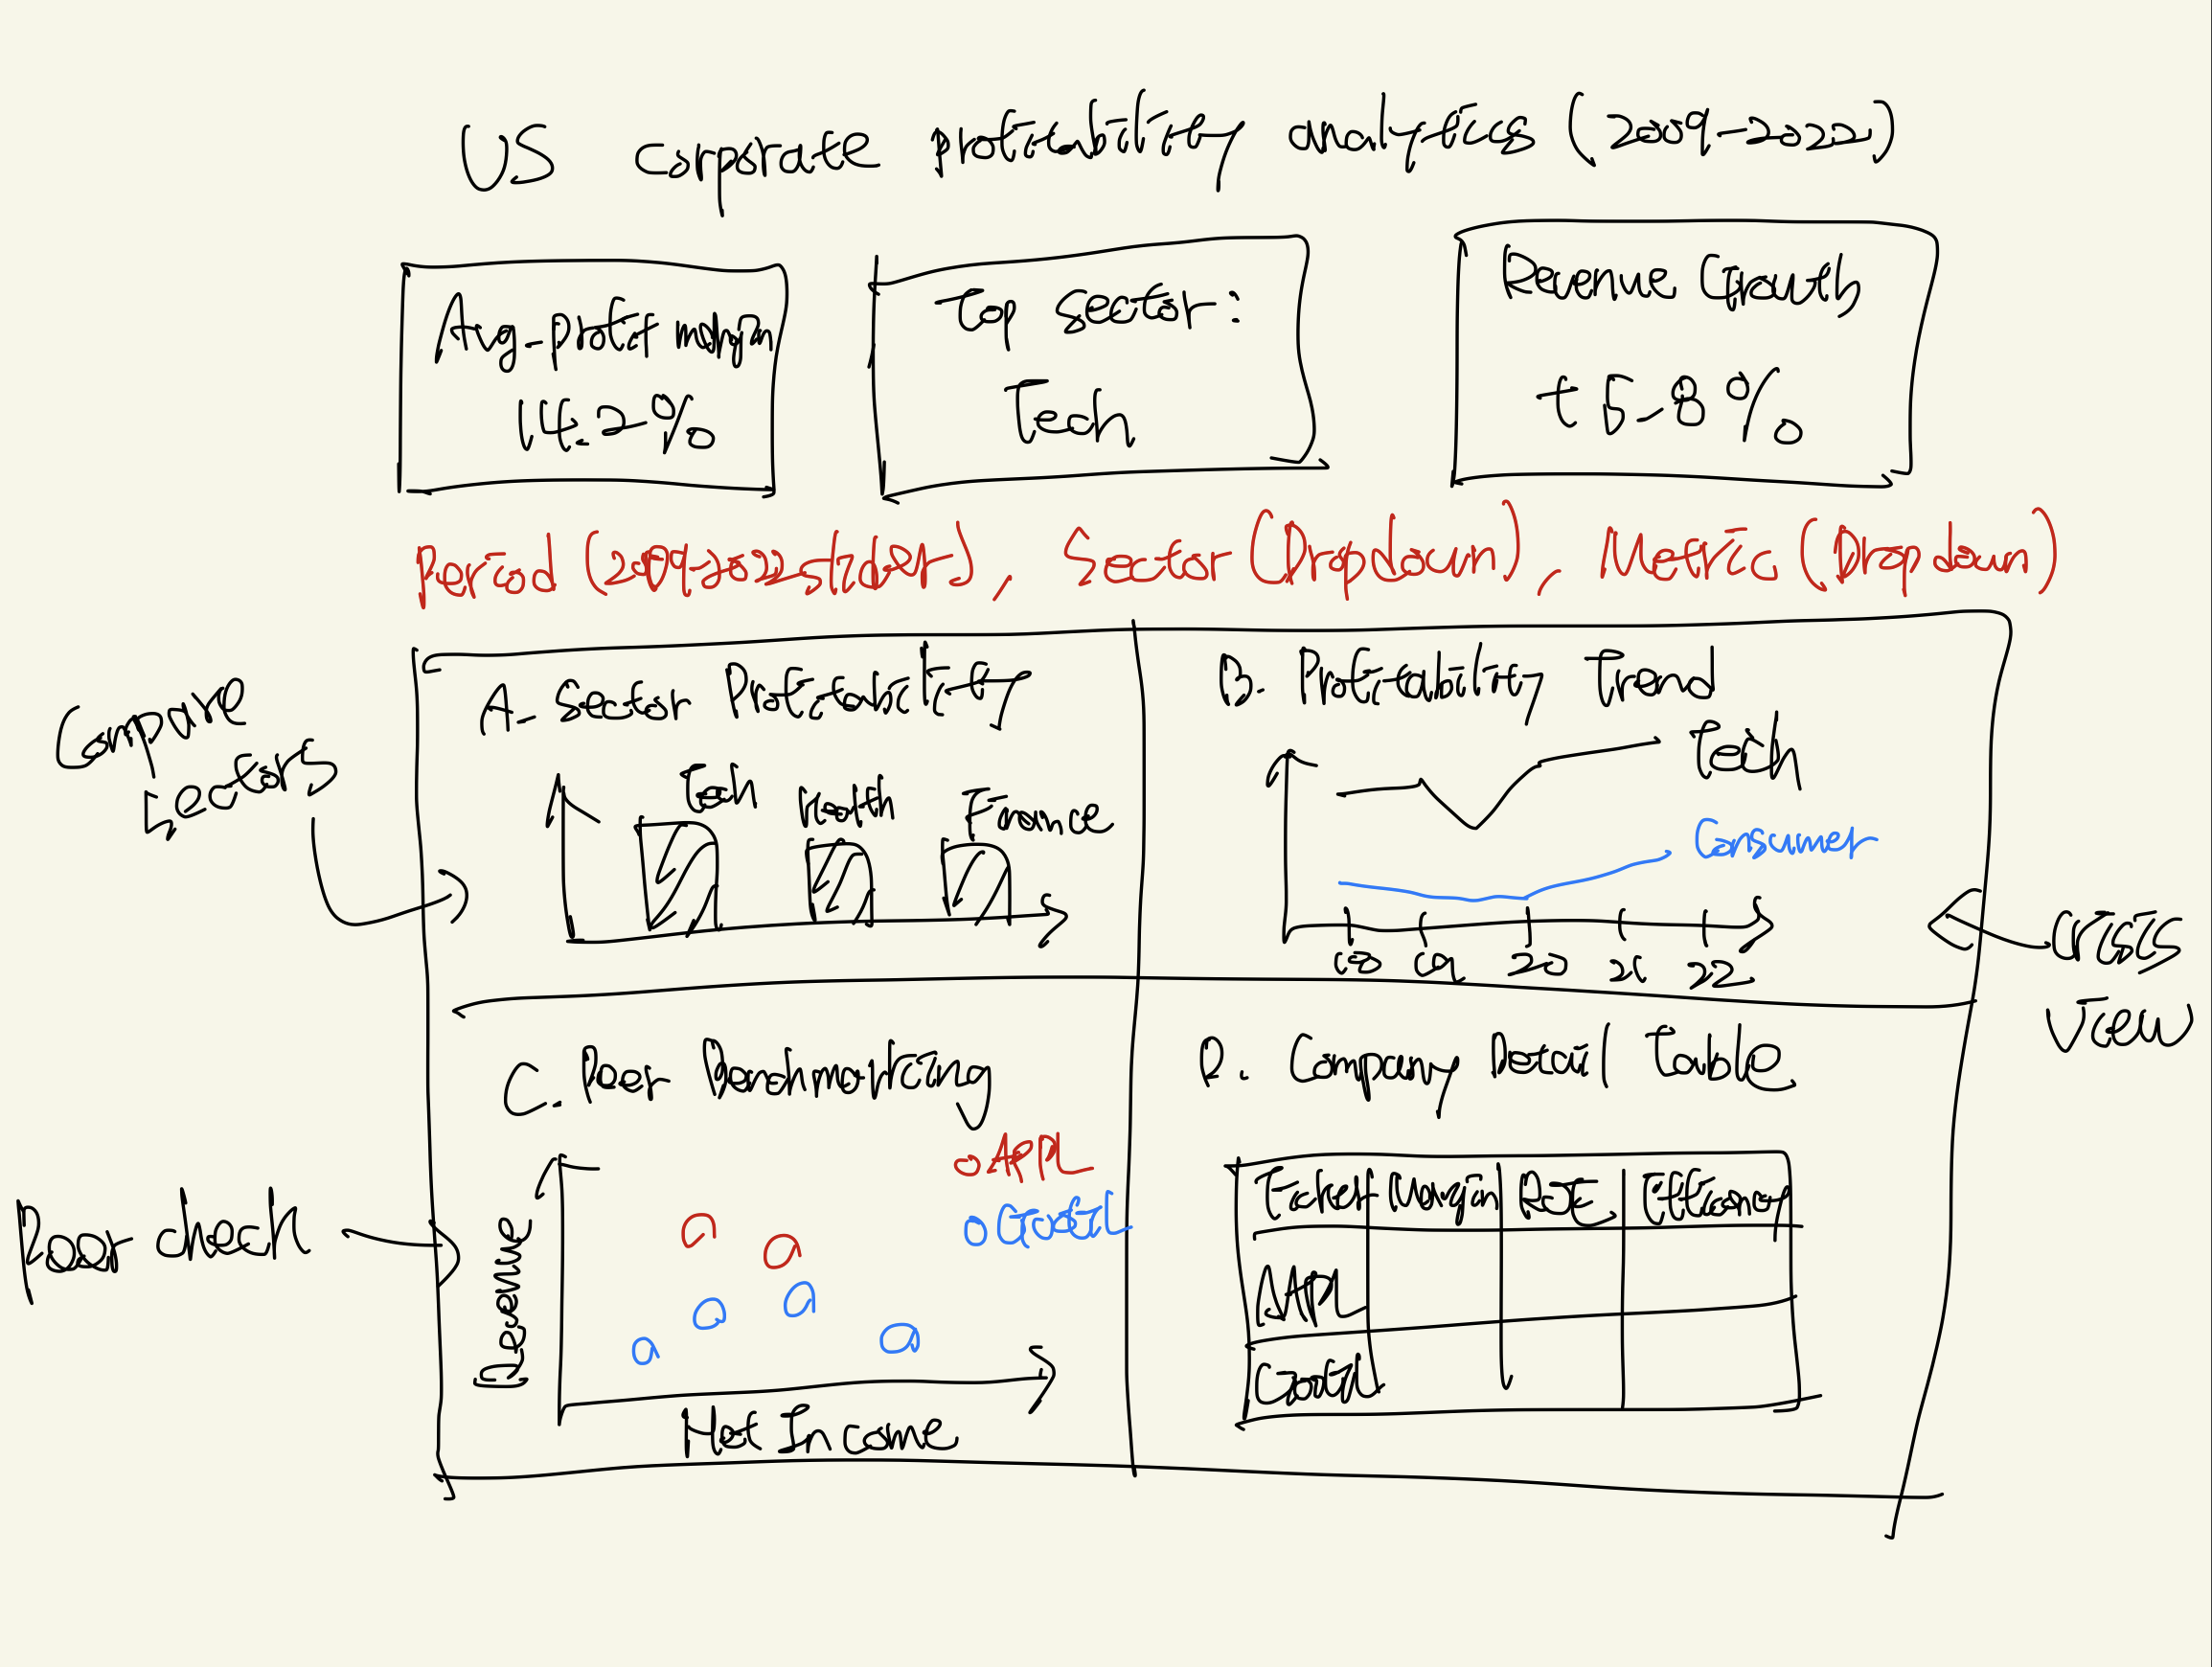 US corporate profitability analytics (2009-2022)
Avg-profit margin
14.2%
Top sector:
Tech
Revenue Growth
+5.8%
Period (2009-2022 slider), Sector (Dropdown), Metric (Dropdown)
Compare
sectors
A. Sector Profitability
Tech Health Finance
B. Profitability Trend
Tech
Consumer
20 21 22
crisis
view
C. Peer Benchmarking
APPL
Revenue
Net Income
Peer check
D. Company Detail Table
Ticker Margin ROE Efficiency
APPL